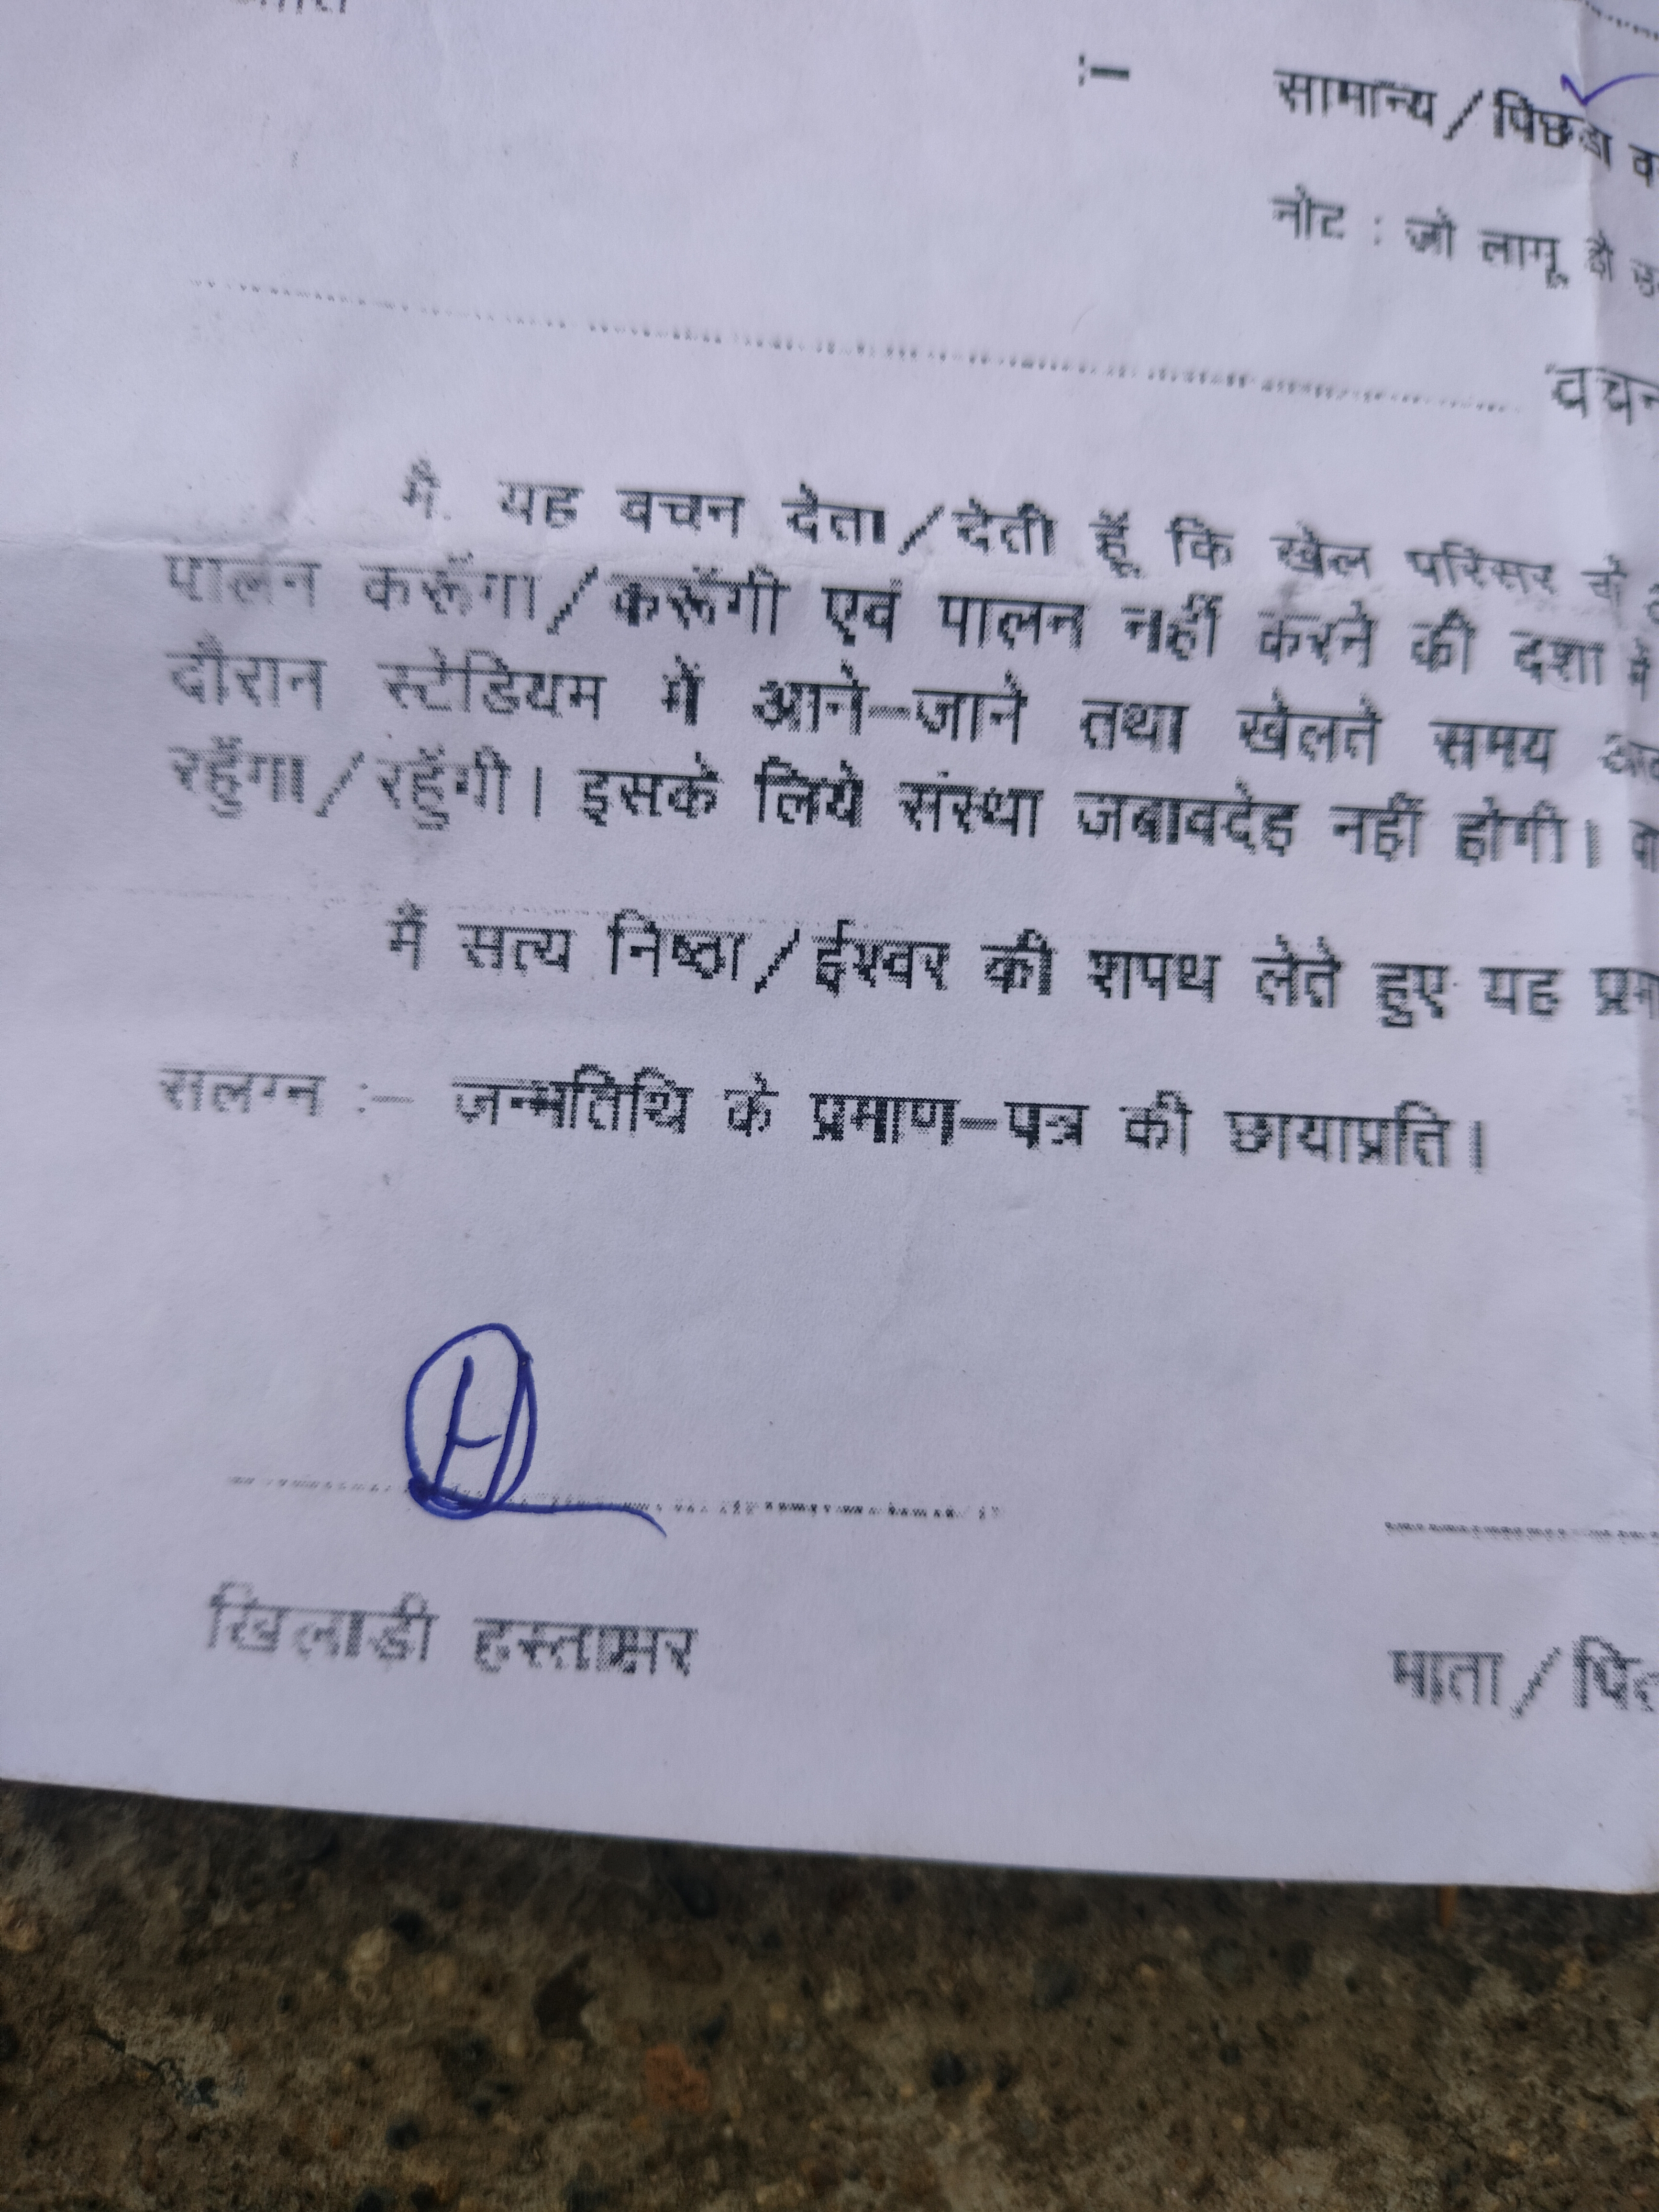 :– सामान्य/पिछडा
नोट : जो लागू हो
मै. यह वचन देता/देती हूँ कि खेल परिसर के
पालन करूँगा/करूँगी एवं पालन नहीं करने की दशा में
दौरान स्टेडियम में आने–जाने तथा खेलते समय
रहुँगा/रहुँगी। इसके लिये संस्था जबावदेह नहीं होगी।
मैं सत्य निष्ठा/ईश्वर की शपथ लेते हुए यह
सलग्न :– जन्मतिथि के प्रमाण–पत्र की छायाप्रति।
H
खिलाडी हस्ताक्षर
माता/